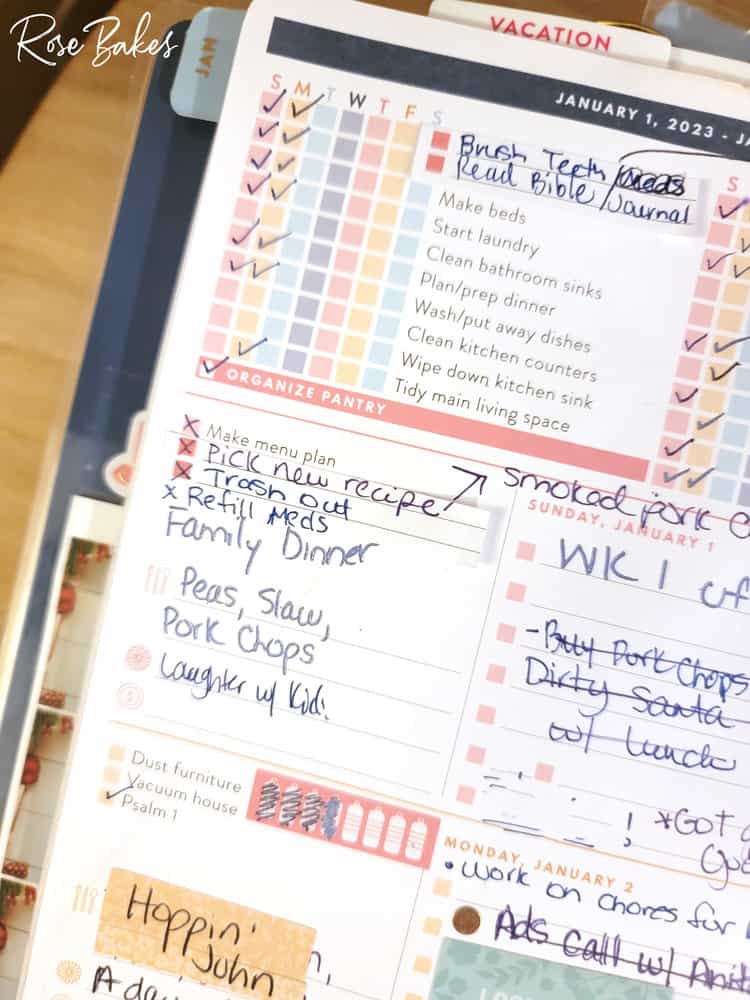 Rose Bakes
JAN
VACATION
JANUARY 1, 2023 - JA
S M T W T F S
S
Brush Teeth /Meds
Read Bible/Journal
Make beds
Start laundry
Clean bathroom sinks
Plan/prep dinner
Wash/put away dishes
Clean kitchen counters
Wipe down kitchen sink
Tidy main living space
ORGANIZE PANTRY
Make menu plan
Pick new recipe
Smoked pork
Trash out
Refill Meds
Family Dinner
Peas, Slaw,
Pork Chops
Laughter w/ Kids!
SUNDAY, JANUARY 1
WK 1 of
-Buy Pork Chops
Dirty Santa
w/ Lunch
! *Got
Dust furniture
Vacuum house
Psalm 1
MONDAY, JANUARY 2
•Work on chores for
Ads Call w/ Anit
Hoppin'
John
A day